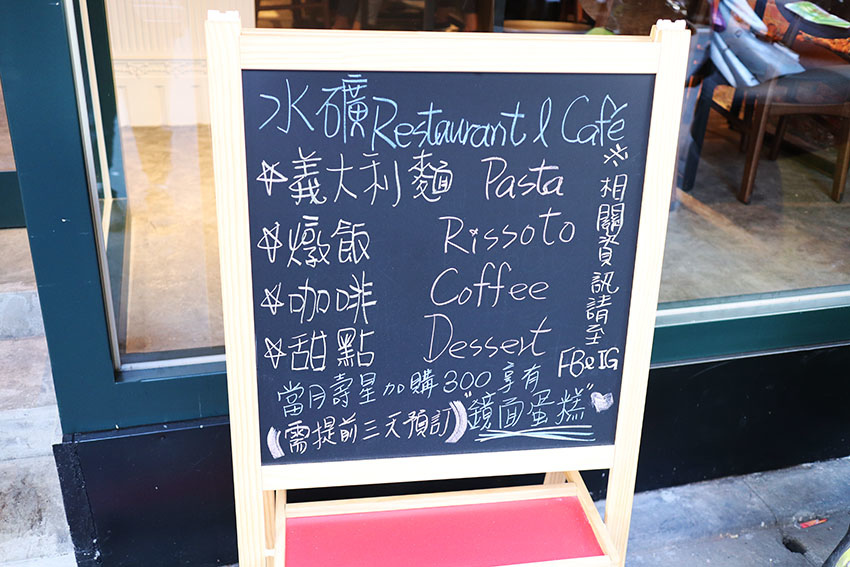 水礦 Restaurant & Café
☆義大利麵 Pasta
☆燉飯 Rissoto
☆咖啡 Coffee
☆甜點 Dessert
當月壽星加購300享有
(需提前三天預訂) "鏡面蛋糕"
※相關資訊請至
FB&IG